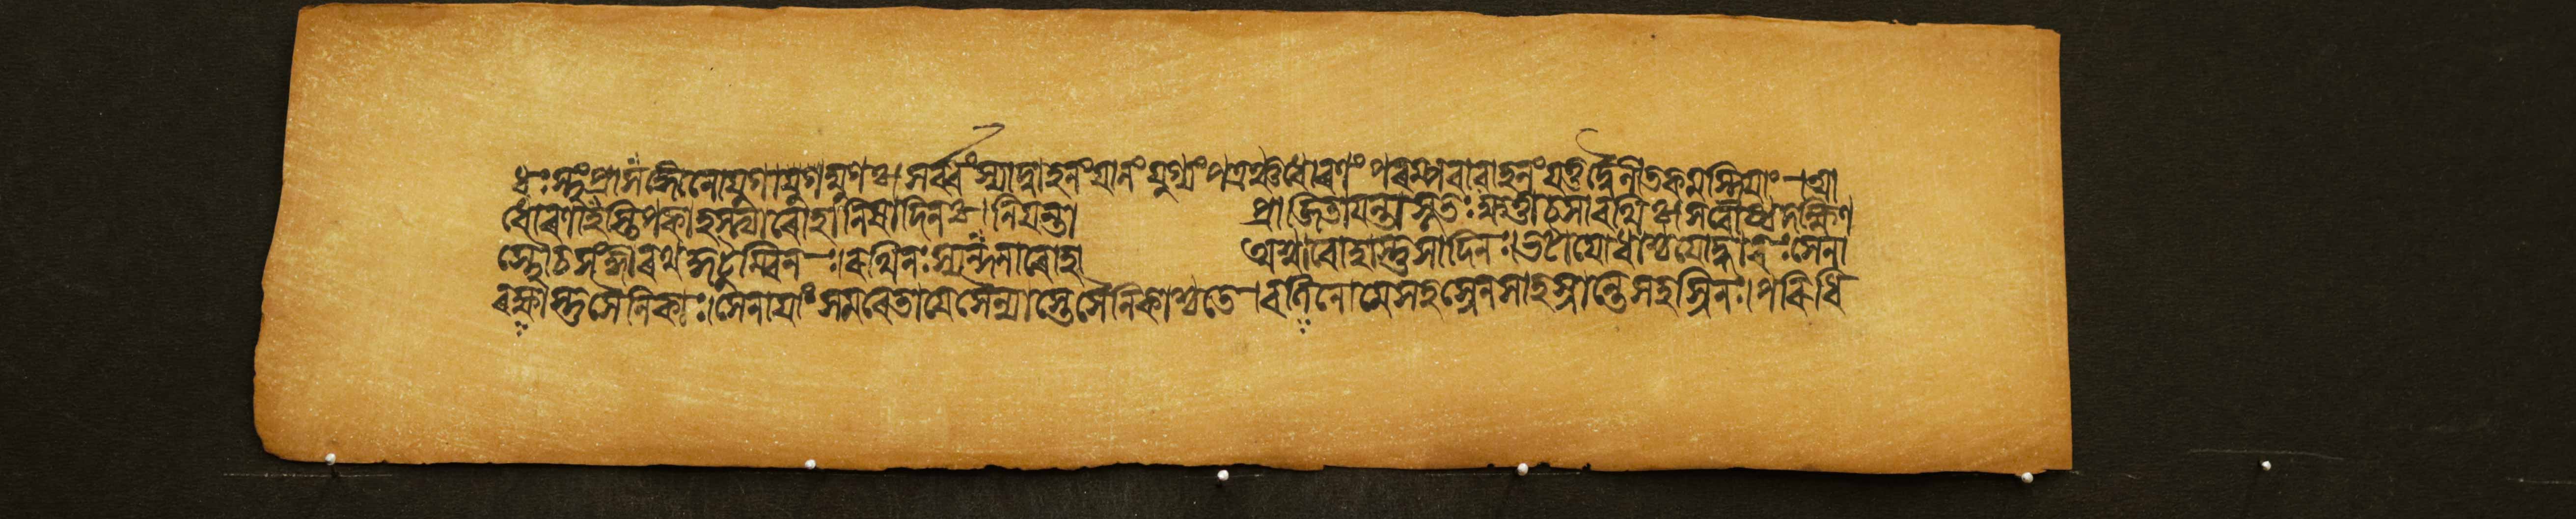 ধঃস্থং প্ৰাসঙ্গো না যুগাদ্যুগঃ। সৰ্ব্বং স্যাদ্বাহনং যানং যুগ্যং পত্ৰঞ্চ ধোৰণং পৰম্পৰাবাহনং যত্তদ্বৈনীতকমস্ত্ৰিয়াং। আ
ধোৰণা হস্তিপকা হস্ত্যাৰোহা নিষাদিনঃ। নিযন্তা প্ৰাজিতা যন্তা সূতঃ ক্ষত্তা চ সাৰথিঃ। সব্যেষ্ঠদক্ষিণ
স্থৌ চ সংজ্ঞা ৰথকুটুম্বিনঃ। ৰথিনঃ স্যন্দনাৰোহা অশ্বাৰোহাস্তু সাদিনঃ। ভটা যোধাশ্চ যোদ্ধাৰঃ সেনা
ৰক্ষাস্তু সৈনিকাঃ। সেনাযাং সমবেতা যে সৈন্যাস্তে সৈনিকাশ্চ তে। বলিনো যে সহস্ৰেণ সাহস্ৰাস্তে সহস্ৰিণঃ। পৰিধি